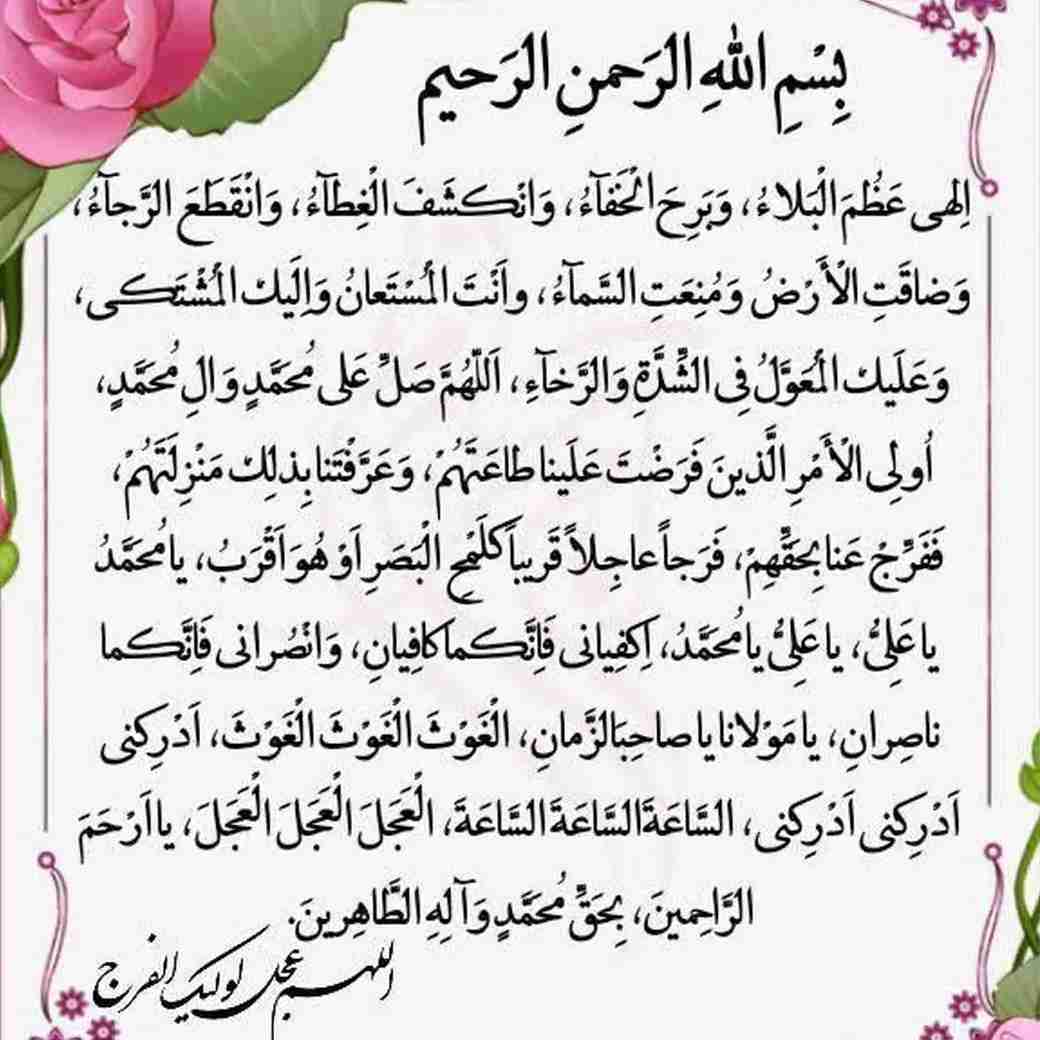 بِسْمِ اللهِ الرَحمنِ الرَحیم
اِلهی عَظُمَ الْبَلاءُ، وَبَرِحَ الْخَفآءُ، وَانْکَشَفَ الْغِطآءُ، وَانْقَطَعَ الرَّجآءُ،
وَضاقَتِ الْأَرْضُ وَمُنِعَتِ السَّمآءُ، واَنْتَ الْمُسْتَعانُ وَاِلَیك الْمُشْتَکی،
وَعَلَیك الْمُعَوَّلُ فِی الشِّدَّةِ وَالرَّخآءِ، اَللّهُمَّ صَلِّ عَلی مُحَمَّدٍ وَالِ مُحَمَّدٍ،
اُولِی الْأَمْرِ الَّذینَ فَرَضْتَ عَلَینا طاعَتَهُمْ، وَعَرَّفْتَنا بِذلِك مَنْزِلَتَهُمْ،
فَفَرِّجْ عَنا بِحَقِّهِمْ، فَرَجاً عاجِلاً قَریباً کَلَمْحِ الْبَصَرِ اَوْ هُوَ اَقْرَبُ، یا مُحَمَّدُ
یا عَلِیُّ، یا عَلِیُّ یا مُحَمَّدُ، اِکفِیانی فَاِنَّکما کافِیانِ، وَانْصُرانی فَاِنَّکما
ناصِرانِ، یا مَوْلانا یا صاحِبَ الزَّمانِ، الْغَوْثَ الْغَوْثَ الْغَوْثَ، اَدْرِکنی
اَدْرِکنی اَدْرِکنی، السَّاعَةَ السَّاعَةَ السَّاعَةَ، الْعَجَلَ الْعَجَلَ الْعَجَلَ، یا اَرْحَمَ
الرَّاحِمینَ، بِحَقِّ مُحَمَّدٍ وَآلِهِ الطَّاهِرینَ.
اللهم عجل لولیک الفرج